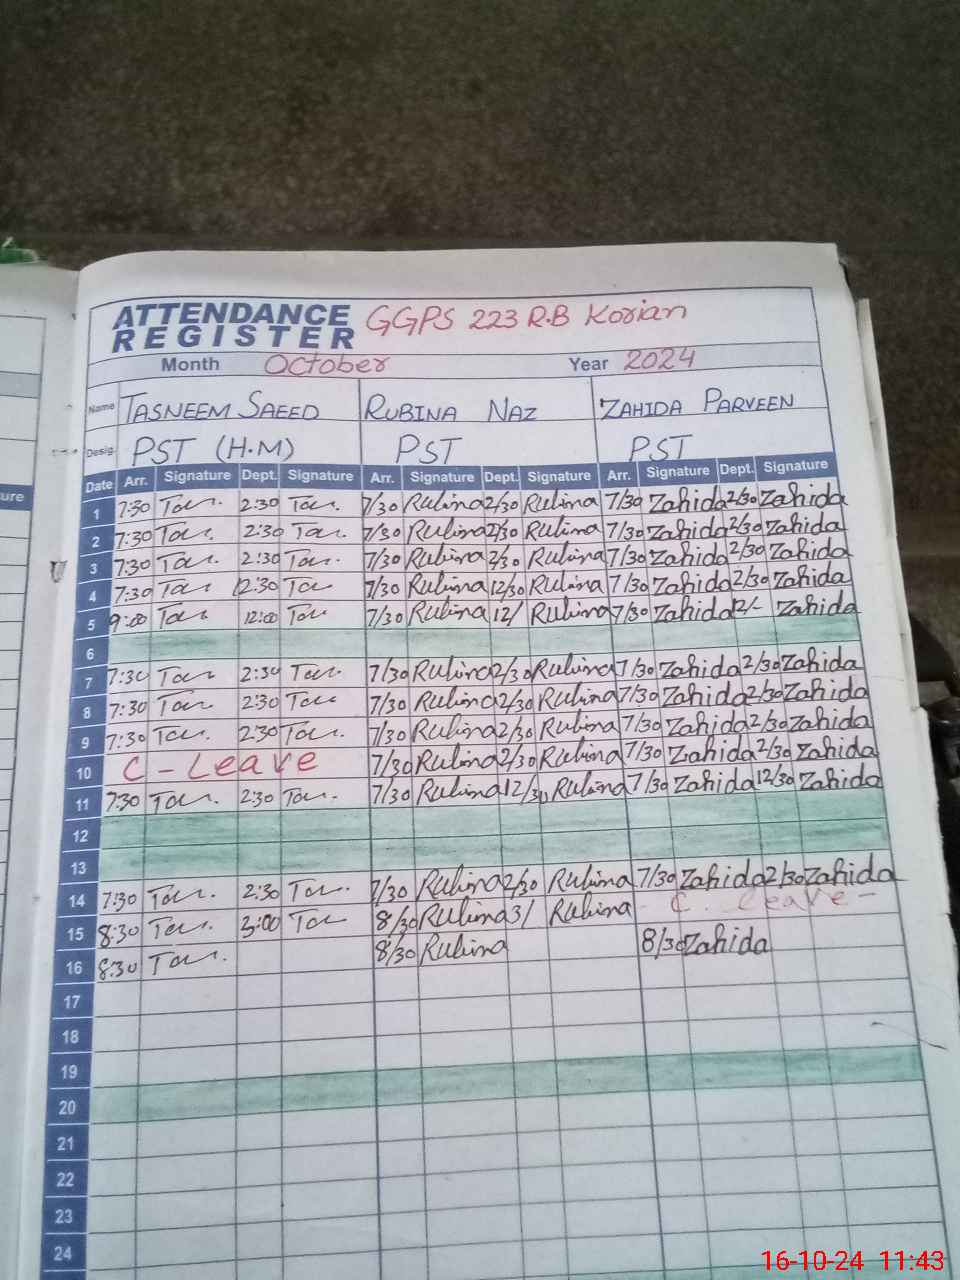 ATTENDANCE REGISTER GGPS 223 R.B Korian
Month October Year 2024
Name TASNEEM SAEED RUBINA NAZ ZAHIDA PARVEEN
Desig. PST (H.M) PST PST
ure Date Arr. Signature Dept. Signature Arr. Signature Dept. Signature Arr. Signature Dept. Signature
1 7:30 2:30 7/30 Rubina 2/30 Rubina 7/30 Zahida 2/30 Zahida
2 7:30 2:30 7/30 Rubina 2/30 Rubina 7/30 Zahida 2/30 Zahida
3 7:30 2:30 7/30 Rubina 2/30 Rubina 7/30 Zahida 2/30 Zahida
4 7:30 12:30 7/30 Rubina 12/30 Rubina 7/30 Zahida 2/30 Zahida
5 9:00 12:00 7/30 Rubina 12/ Rubina 7/30 Zahida 12/- Zahida
6
7 7:30 2:30 7/30 Rubina 2/30 Rubina 7/30 Zahida 2/30 Zahida
8 7:30 2:30 7/30 Rubina 2/30 Rubina 7/30 Zahida 2/30 Zahida
9 7:30 2:30 7/30 Rubina 2/30 Rubina 7/30 Zahida 2/30 Zahida
10 C - Leave 7/30 Rubina 2/30 Rubina 7/30 Zahida 2/30 Zahida
11 7:30 2:30 7/30 Rubina 12/30 Rubina 7/30 Zahida 12/30 Zahida
12
13
14 7:30 2:30 7/30 Rubina 2/30 Rubina 7/30 Zahida 2/30 Zahida
15 8:30 3:00 8/30 Rubina 3/ Rubina - C. Leave -
16 8:30 8/30 Rubina 8/30 Zahida
17
18
19
20
21
22
23
24
16-10-24 11:43